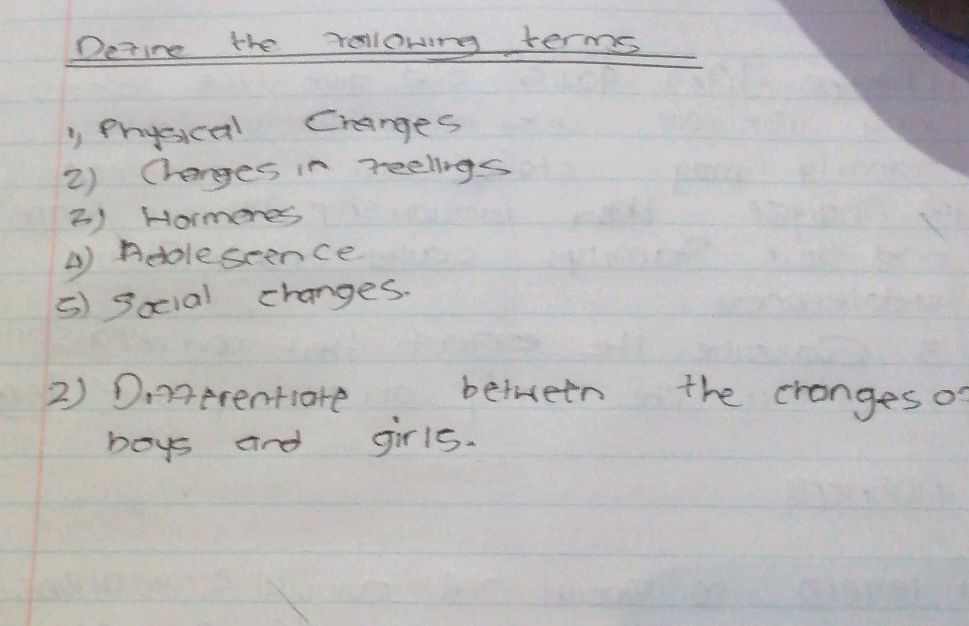 Define the following terms
1) Physical Changes
2) Changes in feelings
3) Hormones
4) Adolescence
5) Social changes.
2) Differentiate between the changes of
boys and girls.